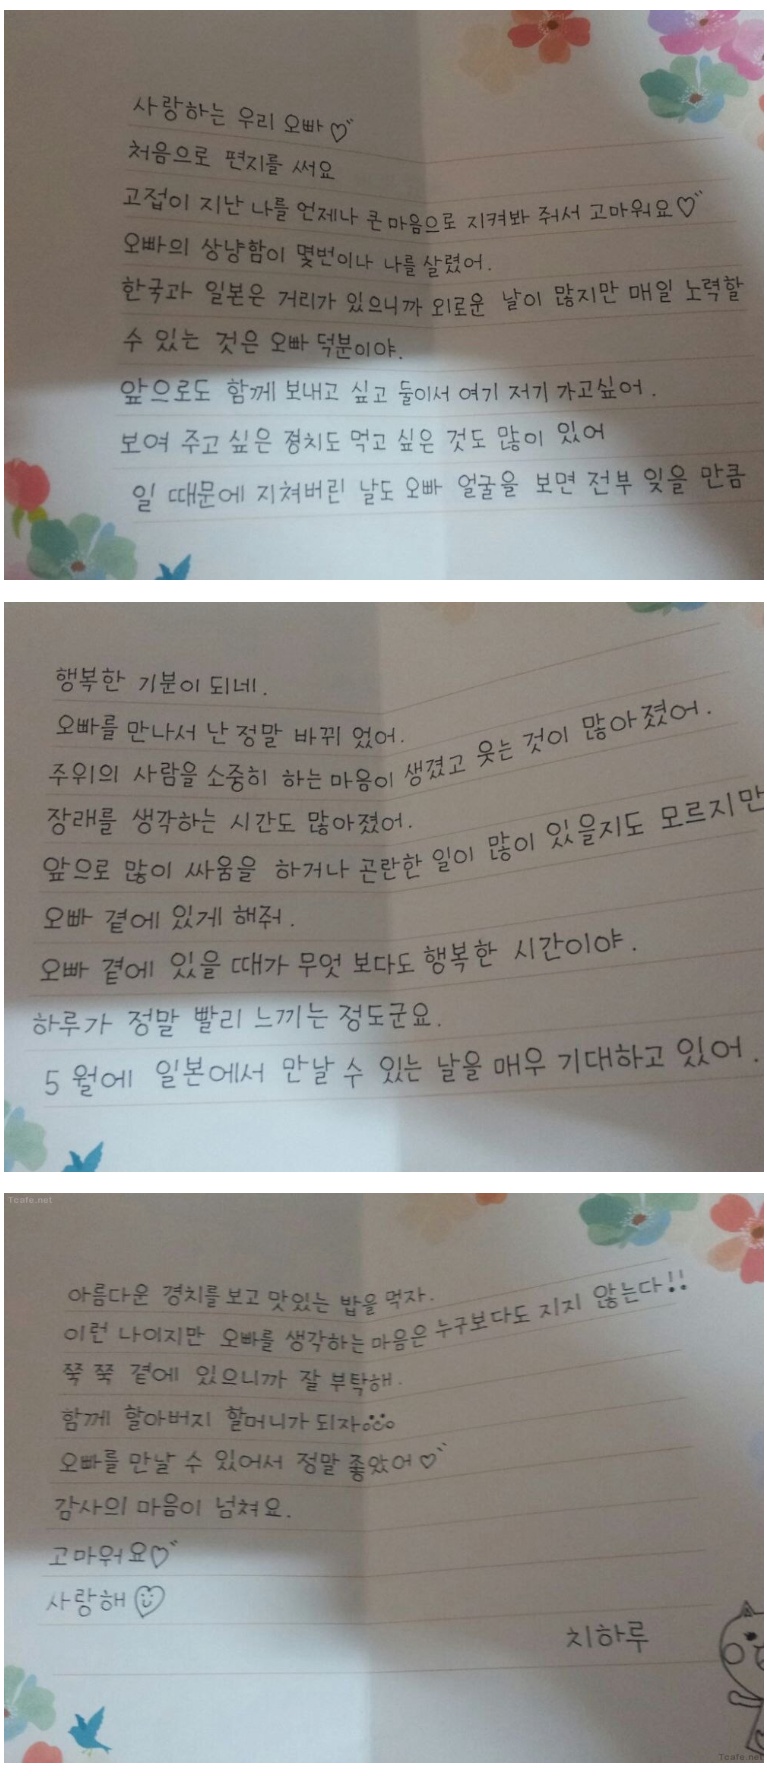 사랑하는 우리 오빠♡
처음으로 편지를 써요
고접이 지난 나를 언제나 큰 마음으로 지켜봐 줘서 고마워요♡
오빠의 상냥함이 몇번이나 나를 살렸어.
한국과 일본은 거리가 있으니까 외로운 날이 많지만 매일 노력할
수 있는 것은 오빠 덕분이야.
앞으로도 함께 보내고 싶고 둘이서 여기 저기 가고싶어.
보여 주고 싶은 경치도 먹고 싶은 것도 많이 있어
일 때문에 지쳐버린 날도 오빠 얼굴을 보면 전부 잊을 만큼
행복한 기분이 되네.
오빠를 만나서 난 정말 바뀌 었어.
주위의 사람을 소중히 하는 마음이 생겼고 웃는 것이 많아졌어.
장래를 생각하는 시간도 많아졌어.
앞으로 많이 싸움을 하거나 곤란한 일이 많이 있을지도 모르지만
오빠 곁에 있게 해줘.
오빠 곁에 있을 때가 무엇 보다도 행복한 시간이야.
하루가 정말 빨리 느끼는 정도군요.
5월에 일본에서 만날 수 있는 날을 매우 기대하고 있어.
Tcafe.net
아름다운 경치를 보고 맛있는 밥을 먹자.
이런 나이지만 오빠를 생각하는 마음은 누구보다도 지지 않는다!!
쭉 쭉 곁에 있으니까 잘 부탁해.
함께 할아버지 할머니가 되자
오빠를 만날 수 있어서 정말 좋았어♡
감사의 마음이 넘쳐요.
고마워요♡
사랑해
치하루
Tcafe.net